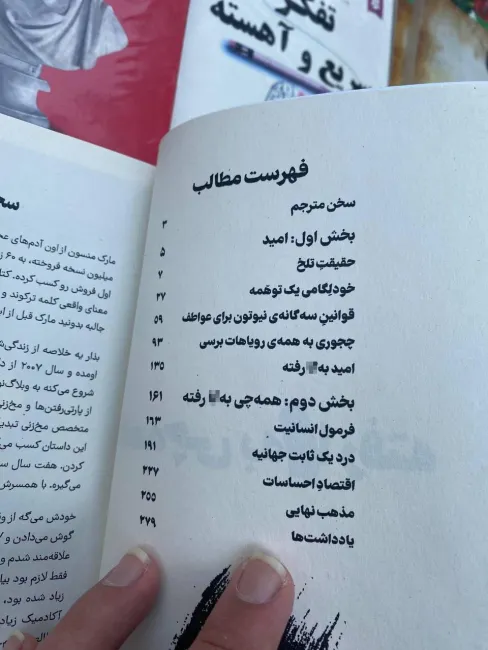 تفکر
و آهسته
فهرست مطالب
سخن مترجم ۳
بخش اول: امید ۵
حقیقتِ تلخ ۷
خودلِگامی یک توهّمه ۲۷
قوانینِ سه‌گانه‌ی نیوتون برای عواطف ۵۹
چجوری به همه‌ی رویاهات برسی ۹۳
امید به رفته ۱۳۵
بخش دوم: همه‌چی به رفته ۱۶۱
فرمول انسانیت ۱۶۳
درد یک ثابت جهانیه ۱۹۱
اقتصادِ احساسات ۲۲۷
مذهب نهایی ۲۵۵
یادداشت‌ها ۲۷۹
مارک منسون از اون آدم‌های
میلیون نسخه فروخته، به ۶۰
اول فروش رو کسب کرده.
معنای واقعی کلمه ترکوند و
جالبه بدونید مارک قبل از
بذار یه خلاصه از
اومده و سال ۲۰۰۷ از
شروع می‌کنه به
از پارتی‌رفتن‌ها و مخ‌زنی
متخصص مخ‌زنی
این داستان کسب
کردن. هفت سال
می‌گیره. با همسرش
خودش می‌گه از
گوش می‌دادن و
علاقه‌مند شدم و
فقط لازم بود
زیاد شده بود،
آکادمیک زیاد